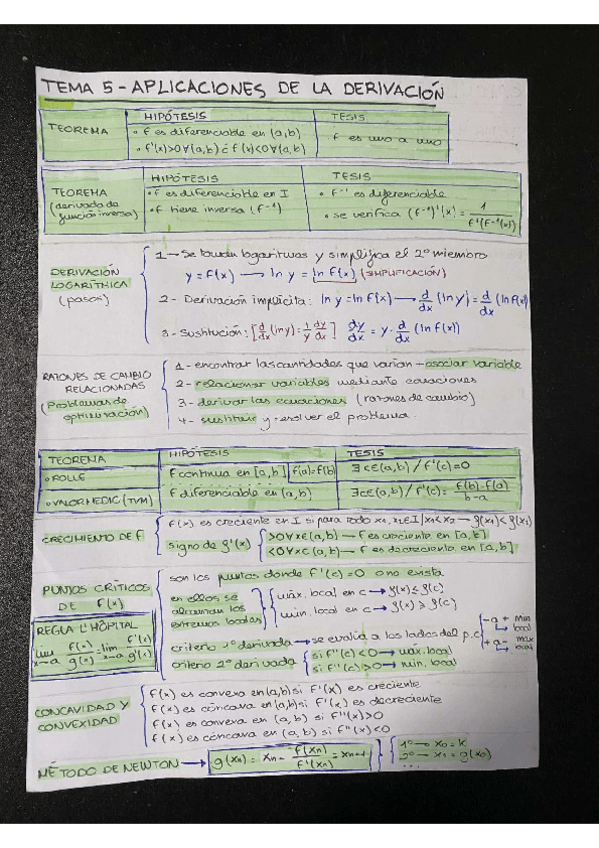 TEMA 5 - APLICACIONES DE LA DERIVACIÓN
TEOREMA
HIPÓTESIS
TESIS
• f es diferenciable en (a,b)
• f'(x)>0∀(a,b) ó f'(x)<0∀(a,b)
f es uno a uno
TEOREMA
(derivada de
función inversa)
HIPÓTESIS
TESIS
• f es diferenciable en I
• f tiene inversa (f⁻¹)
• f⁻¹ es diferenciable
• se verifica (f⁻¹)'(x) = 1/f'(f⁻¹(x))
DERIVACIÓN
LOGARÍTMICA
(pasos)
1 - Se toman logaritmos y simplifica el 2º miembro
y = f(x) → ln y = ln f(x) (SIMPLIFICACIÓN)
2 - Derivación implícita: ln y = ln f(x) → d/dx (ln y) = d/dx (ln f(x))
3 - Sustitución: [d/dx (ln y) = 1/y dy/dx] dy/dx = y · d/dx (ln f(x))
RAZONES DE CAMBIO
RELACIONADAS
(Problemas de
optimización)
1 - encontrar las cantidades que varían → asociar variable
2 - relacionar variables mediante ecuaciones
3 - derivar las ecuaciones (razones de cambio)
4 - sustituir y resolver el problema.
TEOREMA
HIPÓTESIS
TESIS
• ROLLE
f continua en [a,b] f(a)=f(b)
∃c∈(a,b) / f'(c)=0
• VALOR MEDIO (TVM)
f diferenciable en (a,b)
∃c∈(a,b) / f'(c) = f(b)-f(a)/b-a
CRECIMIENTO DE f
f(x) es creciente en I si para todo x₁,x₂∈I | x₁<x₂ → f(x₁)<f(x₂)
signo de f'(x)
>0∀x∈(a,b) → f es creciente en [a,b]
<0∀x∈(a,b) → f es decreciente en [a,b]
PUNTOS CRÍTICOS
DE f(x)
son los puntos donde f'(c) = 0 o no exista
en ellos se
alcanzan los
extremos locales
máx. local en c → f(x) ≤ f(c)
min. local en c → f(x) ≥ f(c)
criterio 1º derivada → se evalúa a los lados del p.c
- a + min local
+ a - max local
criterio 2º derivada
si f''(c)<0 → máx. local
si f''(c)>0 → min. local
REGLA L'HÔPITAL
lim x→a f(x)/g(x) = lim x→a f'(x)/g'(x)
CONCAVIDAD Y
CONVEXIDAD
f(x) es convexa en (a,b) si f'(x) es creciente
f(x) es cóncava en (a,b) si f'(x) es decreciente
f(x) es convexa en (a,b) si f''(x)>0
f(x) es cóncava en (a,b) si f''(x)<0
MÉTODO DE NEWTON → g(xₙ) = xₙ - f(xₙ)/f'(xₙ) = xₙ₊₁
1º → x₀ = k
2º → x₁ = g(x₀)
...